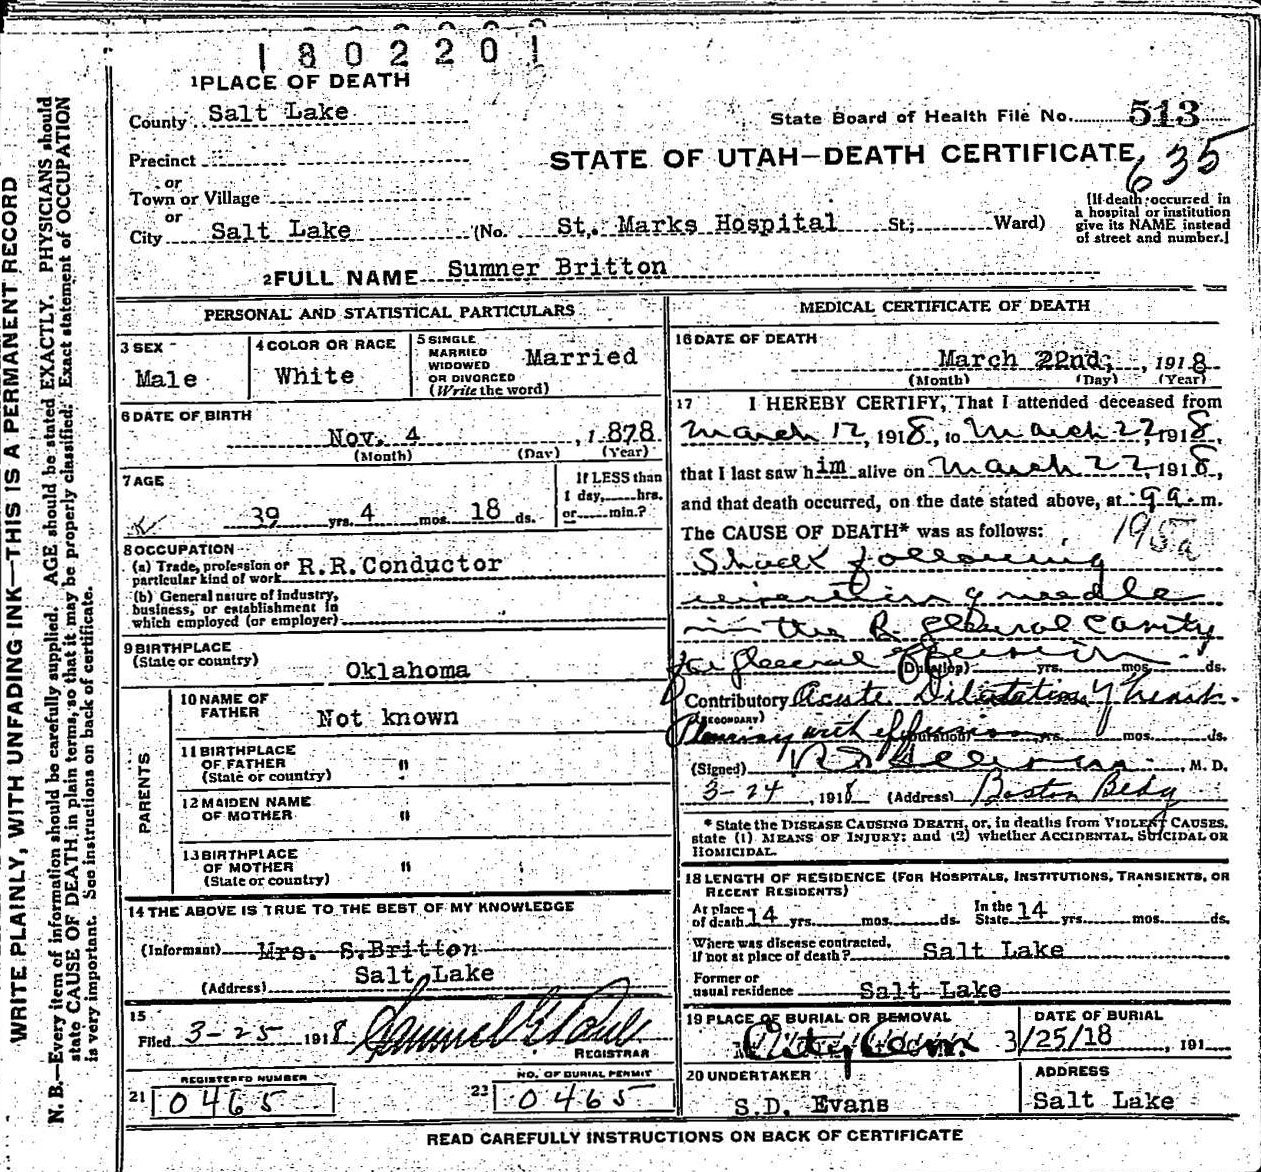 1802201
1 PLACE OF DEATH
County Salt Lake
State Board of Health File No. 513
Precinct
STATE OF UTAH—DEATH CERTIFICATE
635
or
Town or Village
or
City Salt Lake (No. St. Marks Hospital St.; Ward)
[If death occurred in
a hospital or institution
give its NAME instead
of street and number.]
2 FULL NAME Sumner Britton
PERSONAL AND STATISTICAL PARTICULARS
3 SEX
Male
4 COLOR OR RACE
White
5 SINGLE
MARRIED
WIDOWED
OR DIVORCED
(Write the word)
Married
6 DATE OF BIRTH
Nov. 4, 1878
(Month) (Day) (Year)
7 AGE
39 yrs. 4 mos. 18 ds.
If LESS than
1 day, hrs.
or min.?
8 OCCUPATION
(a) Trade, profession or
particular kind of work R.R.Conductor
(b) General nature of industry,
business, or establishment in
which employed (or employer)
9 BIRTHPLACE
(State or country)
Oklahoma
PARENTS
10 NAME OF
FATHER Not known
11 BIRTHPLACE
OF FATHER "
(State or country)
12 MAIDEN NAME
OF MOTHER "
13 BIRTHPLACE
OF MOTHER "
(State or country)
14 THE ABOVE IS TRUE TO THE BEST OF MY KNOWLEDGE
(Informant) Mrs. S.Britton
Salt Lake
(Address)
15
Filed 3-25 1918 Samuel G Paul
REGISTRAR
REGISTERED NUMBER
21 0465
NO. OF BURIAL PERMIT
22 0465
MEDICAL CERTIFICATE OF DEATH
16 DATE OF DEATH
March 22nd; , 1918
(Month) (Day) (Year)
17 I HEREBY CERTIFY, That I attended deceased from
March 12, 1918, to March 22, 1918,
that I last saw him alive on March 22, 1918,
and that death occurred, on the date stated above, at 9 a. m.
The CAUSE OF DEATH* was as follows:
195a
Shock following
insertion of needle
in the R. pleural cavity
for pleural effusion
(Duration) yrs. mos. ds.
Contributory Acute Dilatation of heart.
(SECONDARY)
Pleurisy with effusion
(Duration) yrs. mos. ds.
(Signed) M. D.
3-24, 1918 (Address) Boston Bldg
* State the DISEASE CAUSING DEATH, or, in deaths from VIOLENT CAUSES,
state (1) MEANS OF INJURY; and (2) whether ACCIDENTAL, SUICIDAL OR
HOMICIDAL.
18 LENGTH OF RESIDENCE (FOR HOSPITALS, INSTITUTIONS, TRANSIENTS, OR
RECENT RESIDENTS)
At place
of death 14 yrs. mos. ds.
In the
State 14 yrs. mos. ds.
Where was disease contracted,
if not at place of death? Salt Lake
Former or
usual residence Salt Lake
19 PLACE OF BURIAL OR REMOVAL
City Cem.
DATE OF BURIAL
3/25/18, 191
20 UNDERTAKER
S.D. Evans
ADDRESS
Salt Lake
READ CAREFULLY INSTRUCTIONS ON BACK OF CERTIFICATE
WRITE PLAINLY, WITH UNFADING INK—THIS IS A PERMANENT RECORD
N. B.—Every item of information should be carefully supplied. AGE should be stated EXACTLY. PHYSICIANS should
state CAUSE OF DEATH in plain terms, so that it may be properly classified. Exact statement of OCCUPATION
is very important. See instructions on back of certificate.